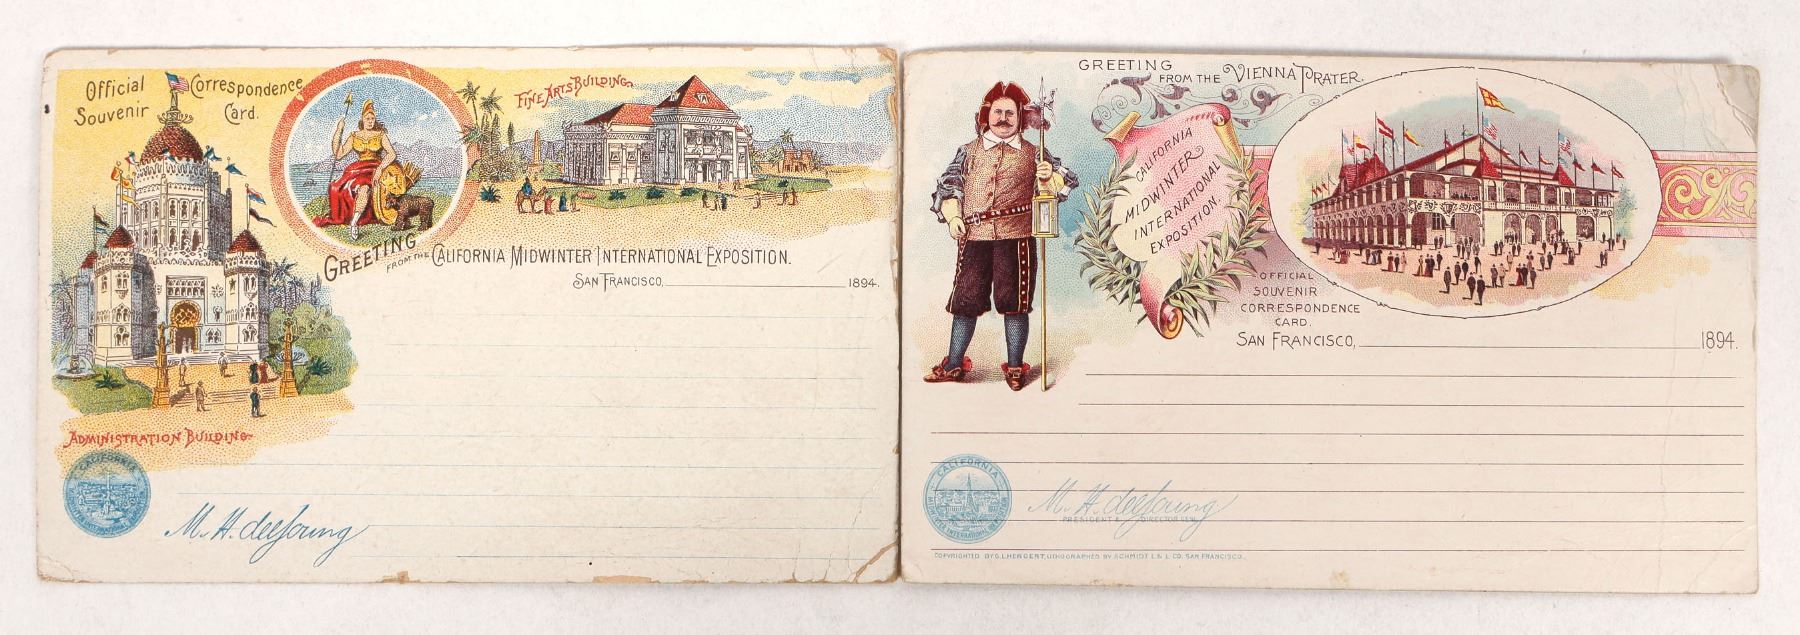 Official
Souvenir
Correspondence
Card.
FINE ARTS BUILDING
GREETING FROM THE CALIFORNIA MIDWINTER INTERNATIONAL EXPOSITION.
SAN FRANCISCO, 1894.
ADMINISTRATION BUILDING
CALIFORNIA
M. H. de Young
GREETING FROM THE VIENNA PRATER.
CALIFORNIA
MIDWINTER
INTERNATIONAL
EXPOSITION.
OFFICIAL
SOUVENIR
CORRESPONDENCE
CARD.
SAN FRANCISCO, 1894.
CALIFORNIA
MIDWINTER INTERNATIONAL EXPOSITION
M. H. de Young
PRESIDENT & DIRECTOR GENL.
COPYRIGHTED BY G. L. HERGERT, LITHOGRAPHED BY SCHMIDT L. & L. CO. SAN FRANCISCO.